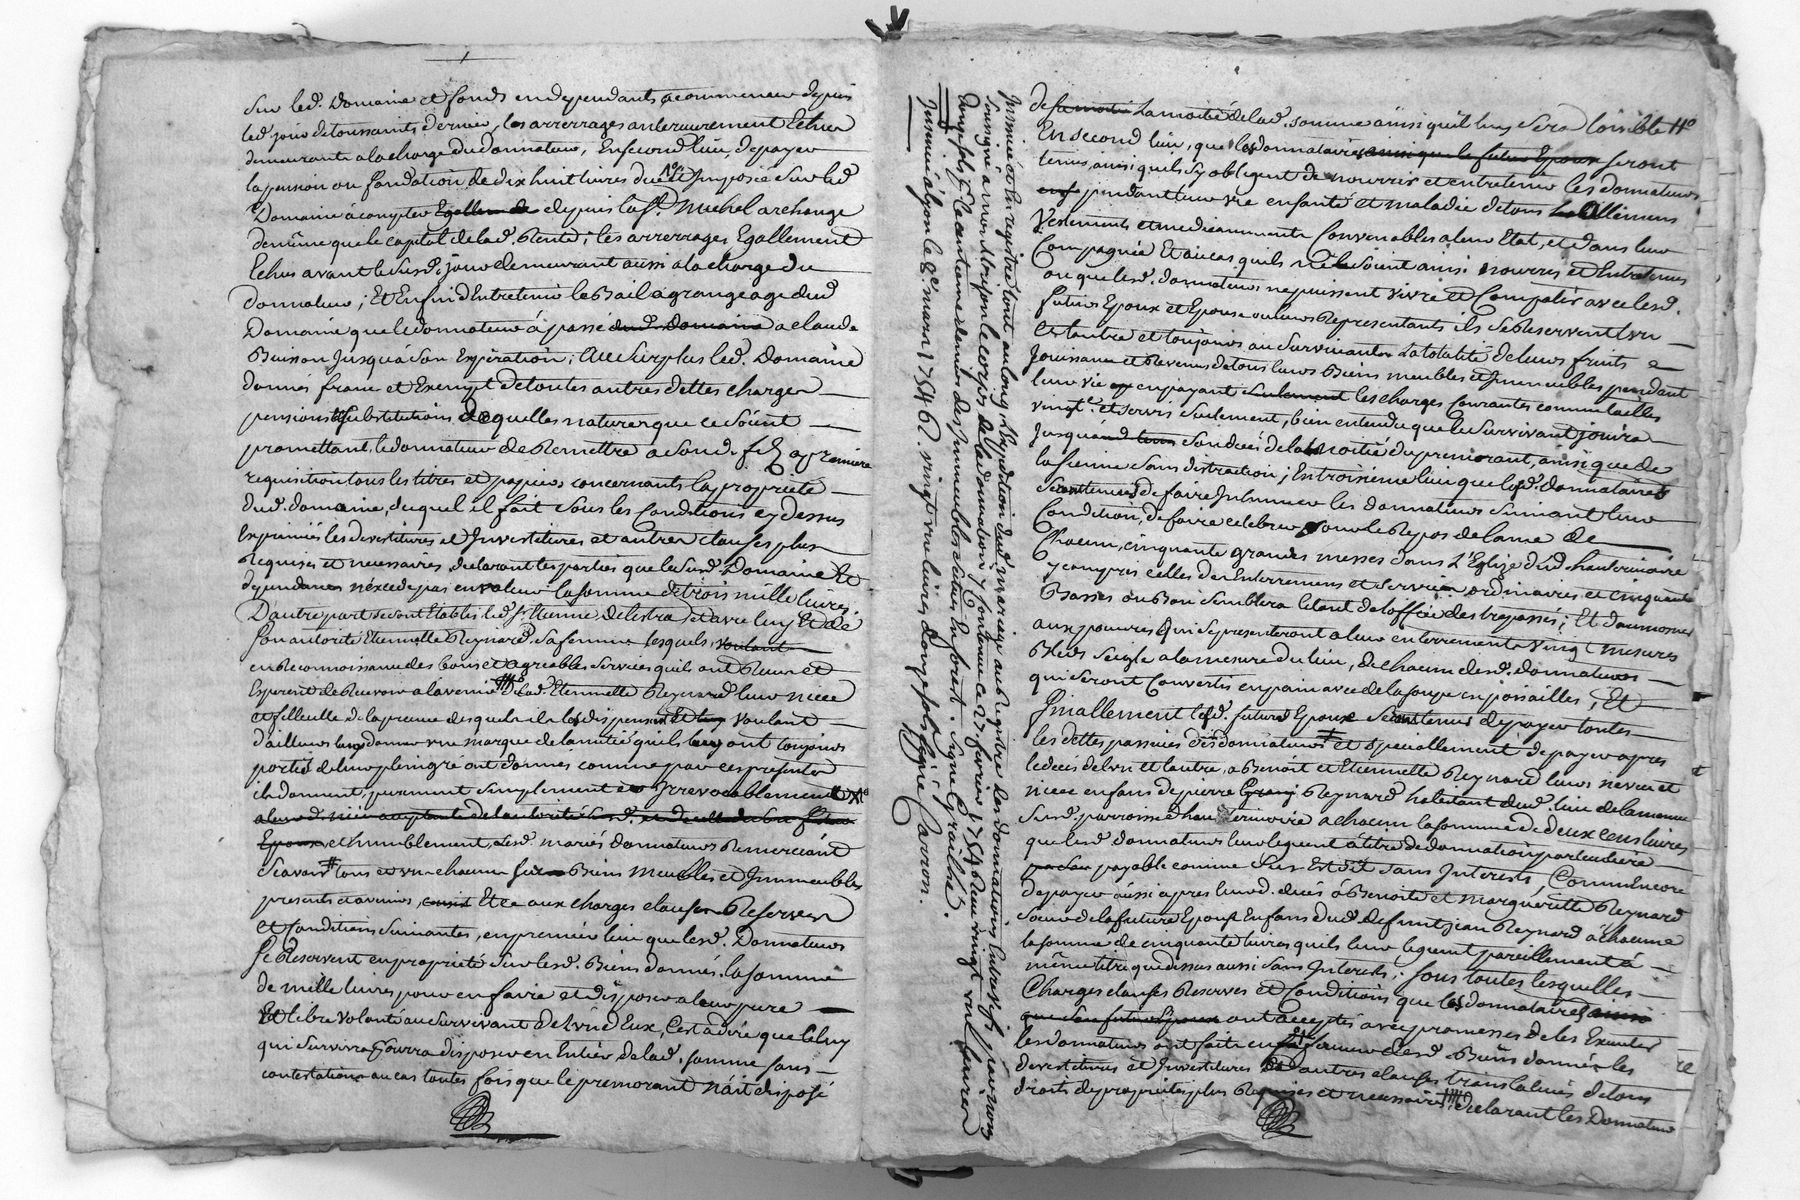 Sur led. Domaine et fonds en dependants a commencer depuis
led. jour de toussaints dernier, les arrerages anterieurement Echus
demeurants a la charge du donnateur, En second lieu, de payer
la pension ou fondation de dix huit livres due et Imposée Sur led
Domaine à compter Egallem de depuis la St. Michel archange
de même que le capital de lad. Rente; les arrerrages Egallement
Echus avant le Susd. jour demeurant aussi a la charge du
donnateur; Et Enfin d'Entretenir le Bail a grangeage dud
Domaine que le donnateur à passé dud. domaine a claude
Buisson Jusqu'à Son Expiration; Au Surplus led. Domaine
donnés franc et Exempt de toutes autres dettes charges
pensions Substitutions de quelles natures que ce Soint
promettant le donnateur de Remettre a Sond. fils a premiere
requisition tous les titres et papiers concernants la proprieté
dud. domaine, duquel il fait Sous les Conditions cy dessus
Exprimées les devestitures et Investitures et autres clauses plus
Requises et necessaires, declarant les parties que le Susd. Domaine Et
dependances n'éxcede pas en valeur la somme de trois mille livres.
D'autre part se sont Etablis led. Sr. Etienne delestra et avec luy Et de
Son autorité Etiennette Reynard Sa femme lesquels voulant
en Reconnoissance des bons et agreables Services qu'ils ont Reçu et
Esperent de Recevoir a l'avenir de lad. Etiennette Reynard leur niece
et filleulle de la preuve desquels ils la dispensent Et luy voulant
d'ailleurs luy donner une marque de l'amitié qu'ils luy ont toujours
portés de leur plein gré ont donnés comme par ces presentes
ils donnent, purement Simplement et Irrevocablement
a leurd. niece acceptante de l'autorité Susd. et de celle dud. futur
Epoux et humblement lesd. mariés donnateurs Remerciant
Scavoir tous et un chacun Ses Biens Meubles et Immeubles
presents et avenirs, Et ce aux charges clauses Reserves
et Conditions Suivantes, en premier lieu que lesd. Donnateurs
Se Reservent en proprieté Sur lesd. Biens donnés la somme
de mille livres pour en faire et disposer a leur pure
Et libre volonté au Survivant de l'un d'Eux, C'est à dire que Celuy
qui Survivra Pourra disposer en Entier de lad. somme sans
contestation au cas toutes fois que le premorant n'ait disposé
Insinué et Enregistré tout au long L'Expedition dud. mariage au Registre des donnations Entrevifs par nous
Soussigné a mon Brison le corps de la donnation y Contenue ce 27 fevrier 1754 Reçu vingt
douze sols le centieme denier des Immeubles Estant En forest. Signé Grailhe.
Insinué à lyon le 8e mars 1754 62. vingt une livres douze sols signé Carron.
de sa moitié La moitié de lad. somme ainsi qu'il luy Sera loisible #o
En second lieu, que les donnataires ainsi que le futur Epoux seront
tenus, ainsi qu'ils s'y obligent de nourrir et entretenir les donnateurs
pendant leur vie en Santé et maladie de tous Allimens
Vestements et medicamments Convenables a leur Etat, et dans leur
Compagnie Et au cas qu'ils ne le Soient ainsi nourris et Entretenus
ou que lesd. donnateurs ne puissent vivre et Compatir avec lesd.
futurs Epoux et Epouse ou leurs Representants ils se Reservent l'un
et l'autre et toujours au Survivant La totalité de leurs fruits
Jouissance et Revenus de tous leurs Biens meubles et Immeubles pendant
leur vie en payant Seulement les charges Courantes comme tailles
vingte. et servis seulement, bien entendu que le Survivant jouira
Jusqu'à Son decés de la Moitié du premorant, ainsi que de
la Sienne Sans distraction; En troisieme lieu que lesd. donnataires
Seront tenus de faire Inhumer les donnateurs Suivant leur
Condition, de faire celebrer pour le Repos de l'ame de
Chacun, cinquante grandes messes dans L'Eglise dud. hauterivoire
y compris celles des Enterremens et Services ordinaires et cinquante
Basses ou Bon Semblera letout de l'office des trepassés; Et d'aumosner
aux pauvres Qui se presenteront a leur enterrements Vingt mesures
Bled Seigle a la mesure du lieu, de chacun desd. donnateurs
qui Seront Convertis en pain avec de la Soupe en poissailles; Et
finallement lesd. futurs Epoux Seront tenus de payer toutes
les dettes passives des donnateurs et Speciallement de payer apres
le decés de l'un et l'autre, a Benoit et Etiennette Reynard leurs neveu et
niece enfans de pierre Reynard habitant dud. lieu de lamenue
Susd. parroisse d'hauterivoire a chacun la somme de deux cens livres
que lesd. donnateurs leur leguent à titre de donnation particuliere
payable comme Sus Est dit Sans Interests, Comm'Encore
de payer aussi apres leurd. decés à Benoite et marguerite Reynard
Soeurs de la future Epouse Enfans dud. defunt jean Reynard à chacune
la somme de cinquante livres qu'ils leur leguent pareillement à
même titre que dessus aussi Sans Interests; Sous toutes lesquelles
Charges clauses Reserves et Conditions que les donnataires ainsi
que Son futur Epoux ont acceptés avec promesses de les Executer
les donnateurs ont faits en faveur desd. Biens donnés les
devestitures et Investitures Et autres clauses translatives de tous
droits de proprietés plus Requises et necessaires, declarant les Donnateurs